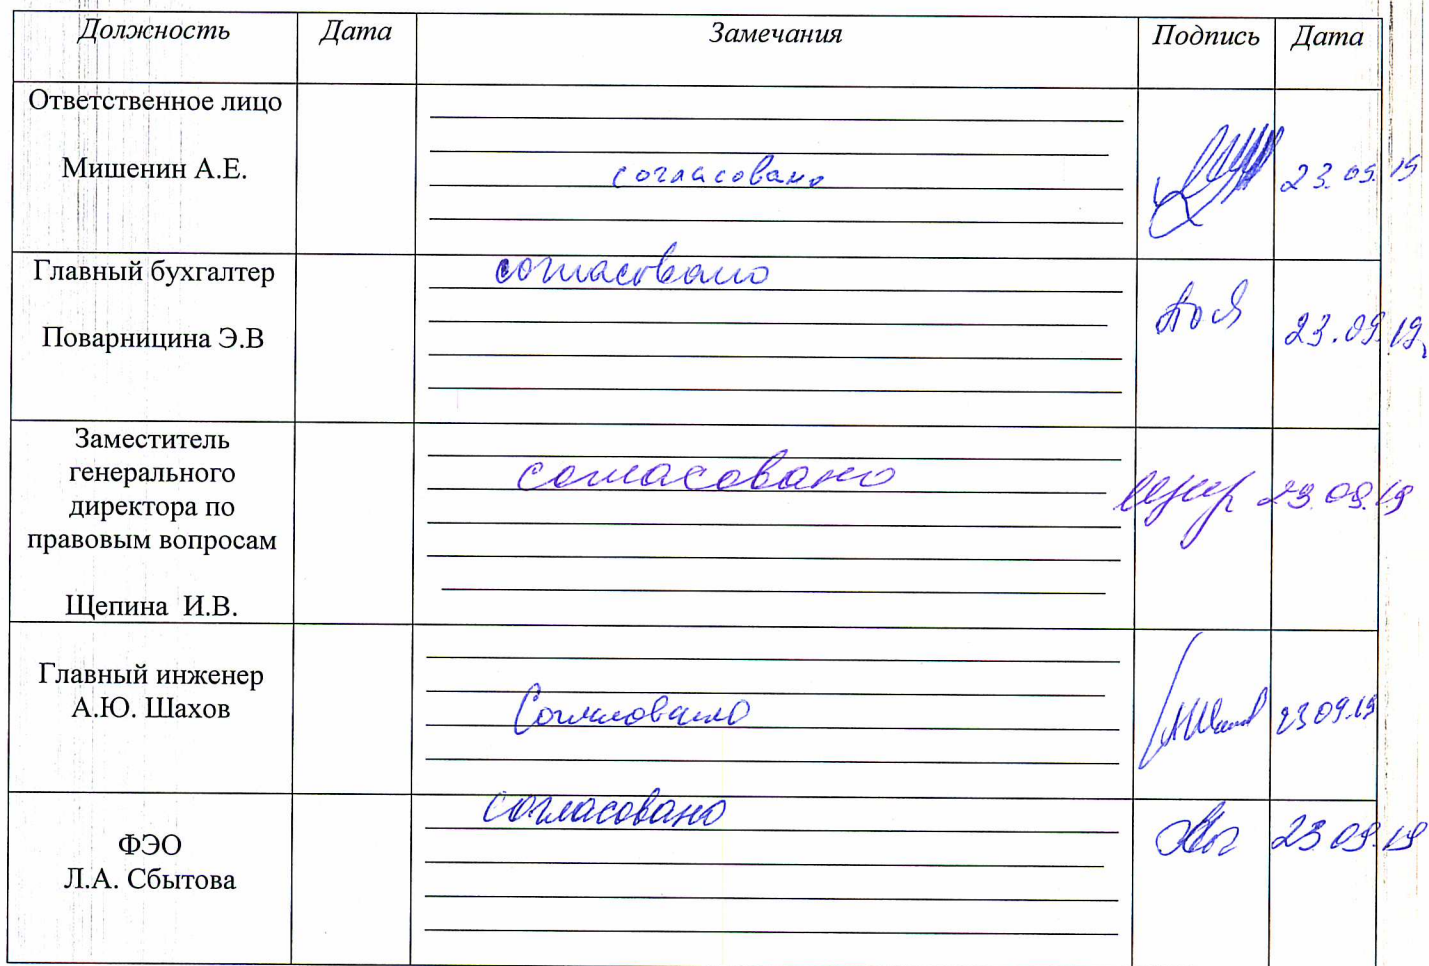 Должность Дата Замечания Подпись Дата
Ответственное лицо
Мишенин А.Е.
согласовано
23.09.19
Главный бухгалтер
Поварницина Э.В
согласовано
23.09.19
Заместитель
генерального
директора по
правовым вопросам
Щепина И.В.
согласовано
23.09.19
Главный инженер
А.Ю. Шахов
Согласовано
23 09.19
ФЭО
Л.А. Сбытова
согласовано
23 09.19